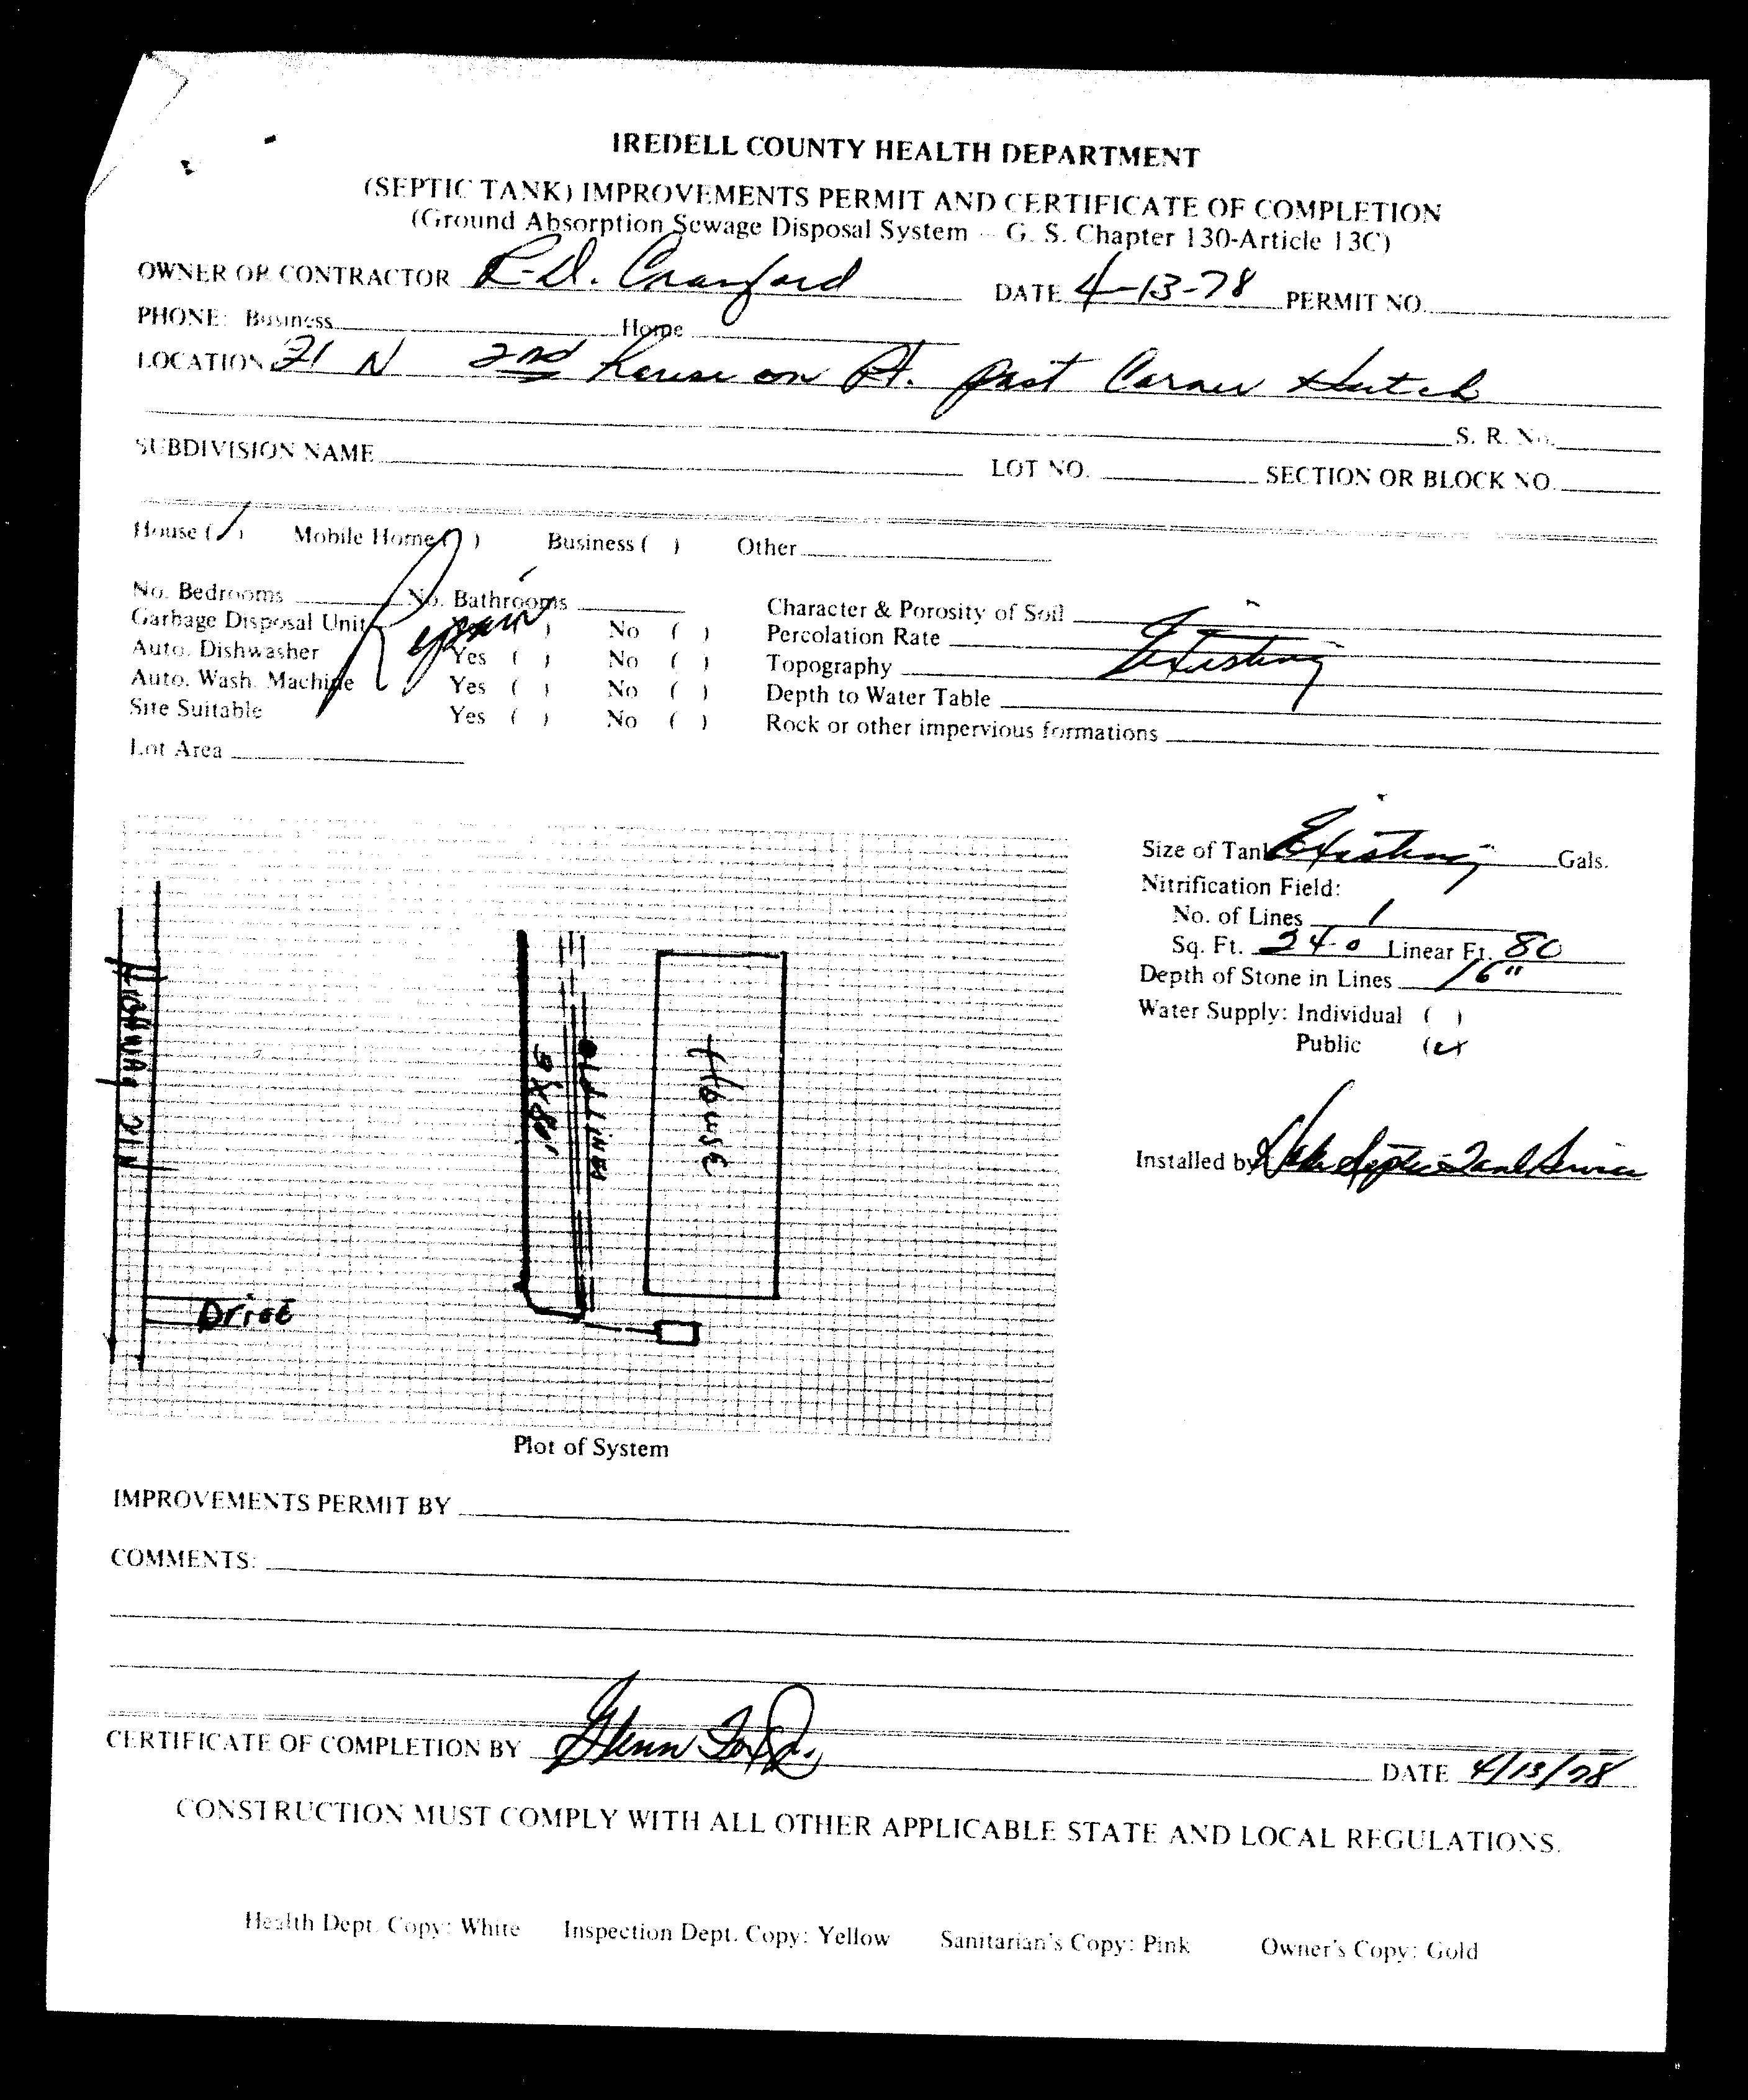 IREDELL COUNTY HEALTH DEPARTMENT
(SEPTIC TANK) IMPROVEMENTS PERMIT AND CERTIFICATE OF COMPLETION
(Ground Absorption Sewage Disposal System - G. S. Chapter 130-Article 13C)
OWNER OR CONTRACTOR R.D. Crawford DATE 4-13-78 PERMIT NO.
PHONE: Business Home
LOCATION 21 N 2nd house on Rt. past Caraer Hutch
S. R. No.
SUBDIVISION NAME LOT NO. SECTION OR BLOCK NO.
House (/) Mobile Home ( ) Business ( ) Other
No. Bedrooms No. Bathrooms Character & Porosity of Soil
Garbage Disposal Unit Repair ( ) No ( ) Percolation Rate Existing
Auto. Dishwasher Yes ( ) No ( ) Topography
Auto. Wash. Machine Yes ( ) No ( ) Depth to Water Table
Site Suitable Yes ( ) No ( ) Rock or other impervious formations
Lot Area
Size of Tank Existing Gals.
Nitrification Field:
No. of Lines 1
Sq. Ft. 240 Linear Ft. 80
Depth of Stone in Lines 16"
Water Supply: Individual ( )
Public (x)
Installed by Septic Tank Service
Highway 21 N
3'X80'
Old Line
House
Drive
Plot of System
IMPROVEMENTS PERMIT BY
COMMENTS:
CERTIFICATE OF COMPLETION BY Glenn DATE 4/13/78
CONSTRUCTION MUST COMPLY WITH ALL OTHER APPLICABLE STATE AND LOCAL REGULATIONS.
Health Dept. Copy: White Inspection Dept. Copy: Yellow Sanitarian's Copy: Pink Owner's Copy: Gold